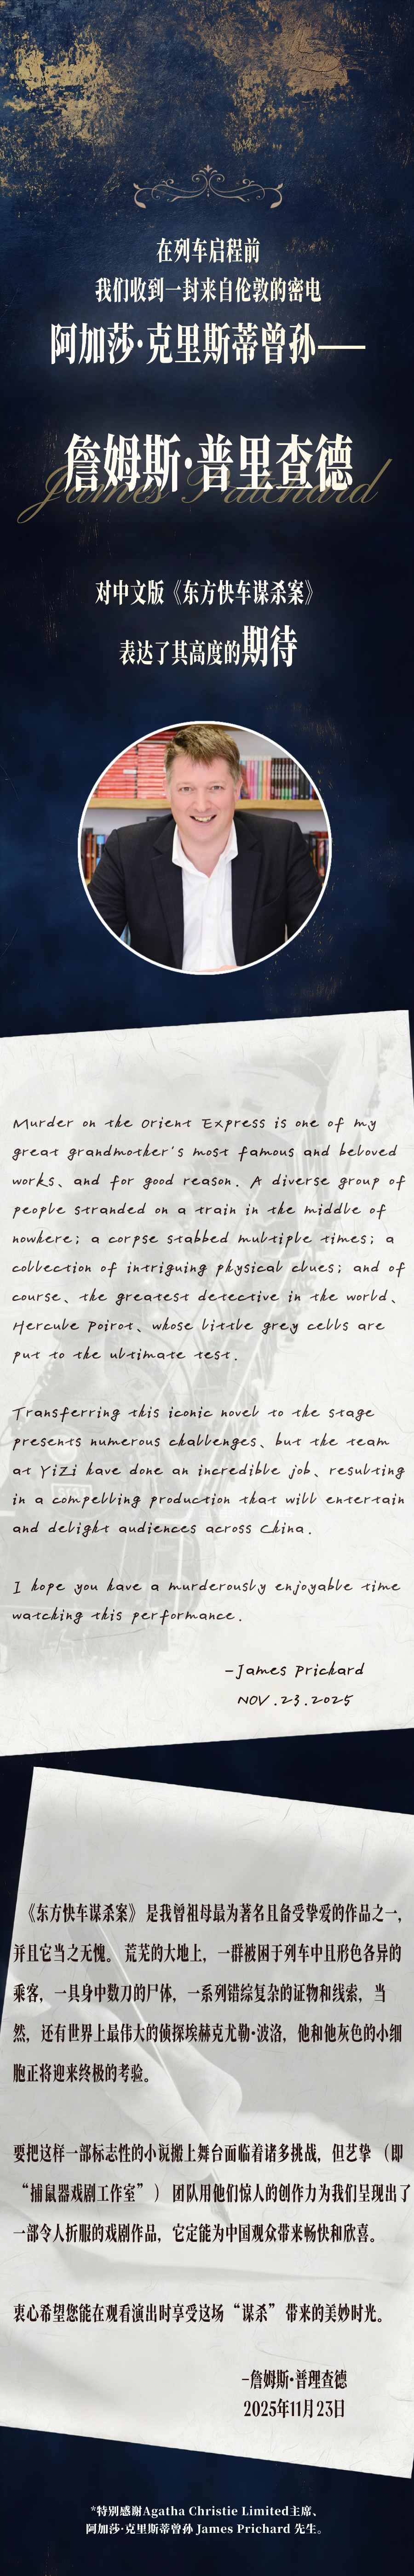 在列车启程前
我们收到一封来自伦敦的密电
阿加莎·克里斯蒂曾孙——
詹姆斯·普里查德
James Pritchard
对中文版《东方快车谋杀案》
表达了其高度的期待
Murder on the Orient Express is one of my
great grandmother's most famous and beloved
works、and for good reason. A diverse group of
people stranded on a train in the middle of
nowhere; a corpse stabbed multiple times; a
collection of intriguing physical clues; and of
course、the greatest detective in the world、
Hercule Poirot、whose little grey cells are
put to the ultimate test.
Transferring this iconic novel to the stage
presents numerous challenges、but the team
at YiZi have done an incredible job、resulting
in a compelling production that will entertain
and delight audiences across China.
I hope you have a murderously enjoyable time
watching this performance.
-James Prichard
NOV.23.2025
《东方快车谋杀案》是我曾祖母最为著名且备受挚爱的作品之一，
并且它当之无愧。荒芜的大地上，一群被困于列车中且形色各异的
乘客，一具身中数刀的尸体，一系列错综复杂的证物和线索，当
然，还有世界上最伟大的侦探埃赫克尤勒·波洛，他和他灰色的小细
胞正将迎来终极的考验。
要把这样一部标志性的小说搬上舞台面临着诸多挑战，但艺挚（即
“捕鼠器戏剧工作室”）团队用他们惊人的创作力为我们呈现出了
一部令人折服的戏剧作品，它定能为中国观众带来畅快和欣喜。
衷心希望您能在观看演出时享受这场“谋杀”带来的美妙时光。
-詹姆斯·普理查德
2025年11月23日
*特别感谢Agatha Christie Limited主席、
阿加莎·克里斯蒂曾孙 James Prichard 先生。